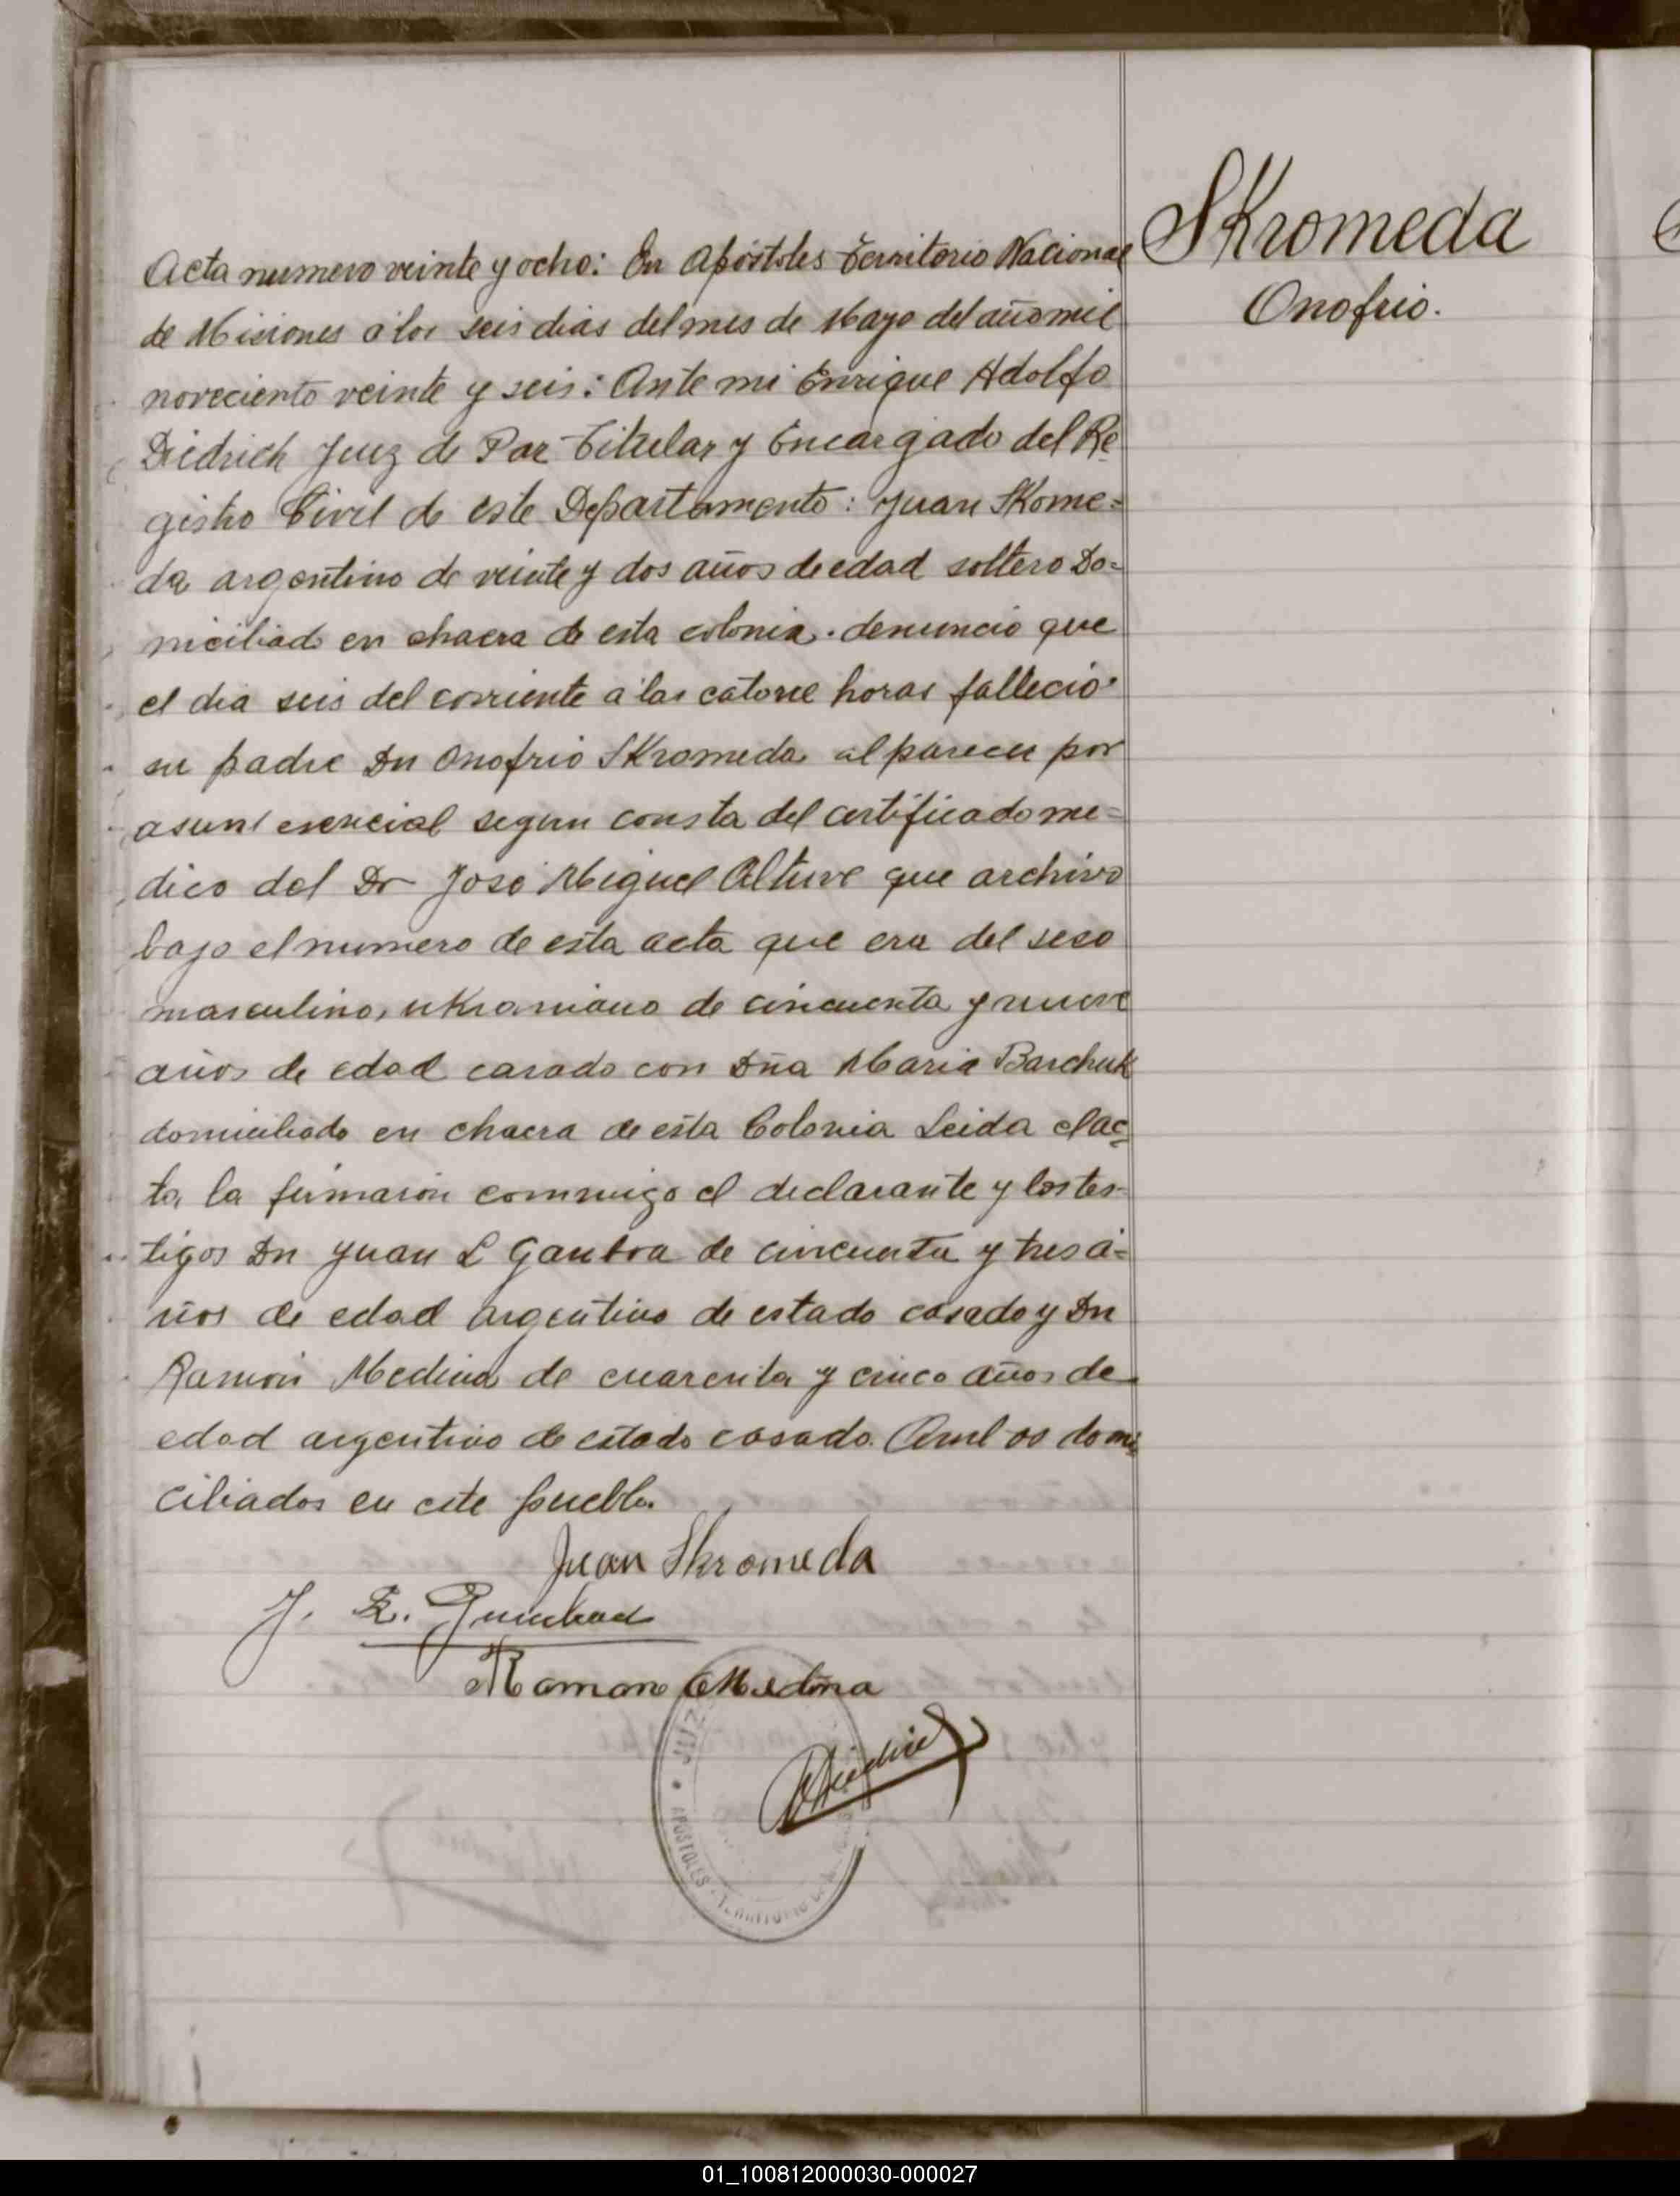 Acta numero veinte y ocho: En Apóstoles Territorio Nacional
de Misiones a los seis dias del mes de Mayo del año mil
noveciento veinte y seis: Ante mi Enrique Adolfo
Diedrich Juez de Paz Titular y Encargado del Re
gistro Civil de este Departamento: Juan SKome=
da argentino de veinte y dos años de edad soltero Do=
miciliado en chacra de esta colonia. denuncio que
el dia seis del corriente a las catorce horas fallecio
su padre Dn Onofrio SKromeda al parecer por
esencial segun consta del certificado me=
dico del Dr José Miguel Alture que archivo
bajo el numero de esta acta que era del sexo
masculino, uKraniano de cincuenta y nueve
años de edad casado con Dña Maria Barchuk
domiciliado en chacra de esta Colonia Leida el ac=
ta la firmaron commigo el declarante y los tes-
tigos Dn Juan L de cincuenta y tres a=
ños de edad argentino de estado casado y Dn
Ramon Medina de cuarenta y cinco años de
edad argentino de estado casado. Ambos domi
ciliados en este pueblo.
Juan Skromeda
J. L.
Ramon Medina
JUZ
APOSTOLES - TERRITORIO
SKromeda
Onofrio.
01_100812000030-000027